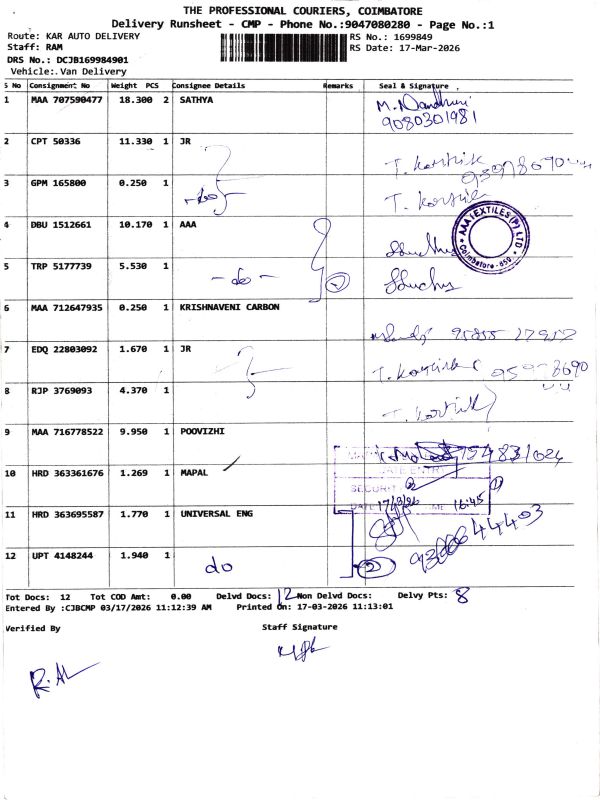 THE PROFESSIONAL COURIERS, COIMBATORE
Delivery Runsheet - CMP - Phone No.:9047080280 - Page No.:1
Route: KAR AUTO DELIVERY
RS No.: 1699849
Staff: RAM
RS Date: 17-Mar-2026
DRS No.: DCJB169984901
Vehicle:.Van Delivery
S No Consignment No Weight PCS Consignee Details Remarks Seal & Signature
1 MAA 707590477 18.300 2 SATHYA
9080301981
2 CPT 50336 11.330 1 JR
T. Karthik
3 GPM 165800 0.250 1 -do-
T. Karthik
4 DBU 1512661 10.170 1 AAA
AAA TEXTILES (P) LTD
Coimbatore
5 TRP 5177739 5.530 1 -do- 2
6 MAA 712647935 0.250 1 KRISHNAVENI CARBON
7 EDQ 22803092 1.670 1 JR
T. Karthik
8 RJP 3769093 4.370 1
T. Karthik
9 MAA 716778522 9.950 1 POOVIZHI
10 HRD 363361676 1.269 1 MAPAL
DATE ENTRY
17/3/26 16:45
11 HRD 363695587 1.770 1 UNIVERSAL ENG
12 UPT 4148244 1.940 1 do 2
Tot Docs: 12 Tot COD Amt: 0.00 Delvd Docs: 12 Non Delvd Docs: Delvy Pts: 8
Entered By :CJBCMP 03/17/2026 11:12:39 AM Printed On: 17-03-2026 11:13:01
Verified By Staff Signature